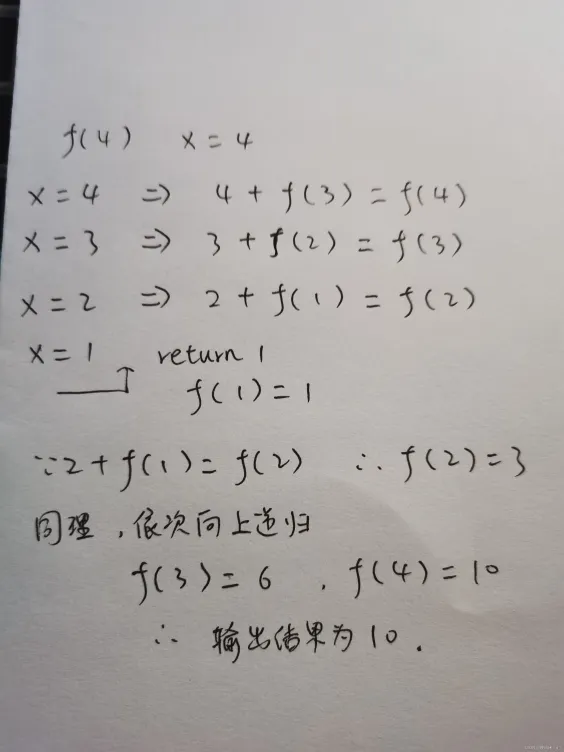 f(4) x = 4
x = 4 => 4 + f(3) = f(4)
x = 3 => 3 + f(2) = f(3)
x = 2 => 2 + f(1) = f(2)
x = 1 return 1
f(1) = 1
∵2 + f(1) = f(2) ∴ f(2) = 3
同理，依次向上递归
f(3) = 6 , f(4) = 10
∴ 输出结果为10.